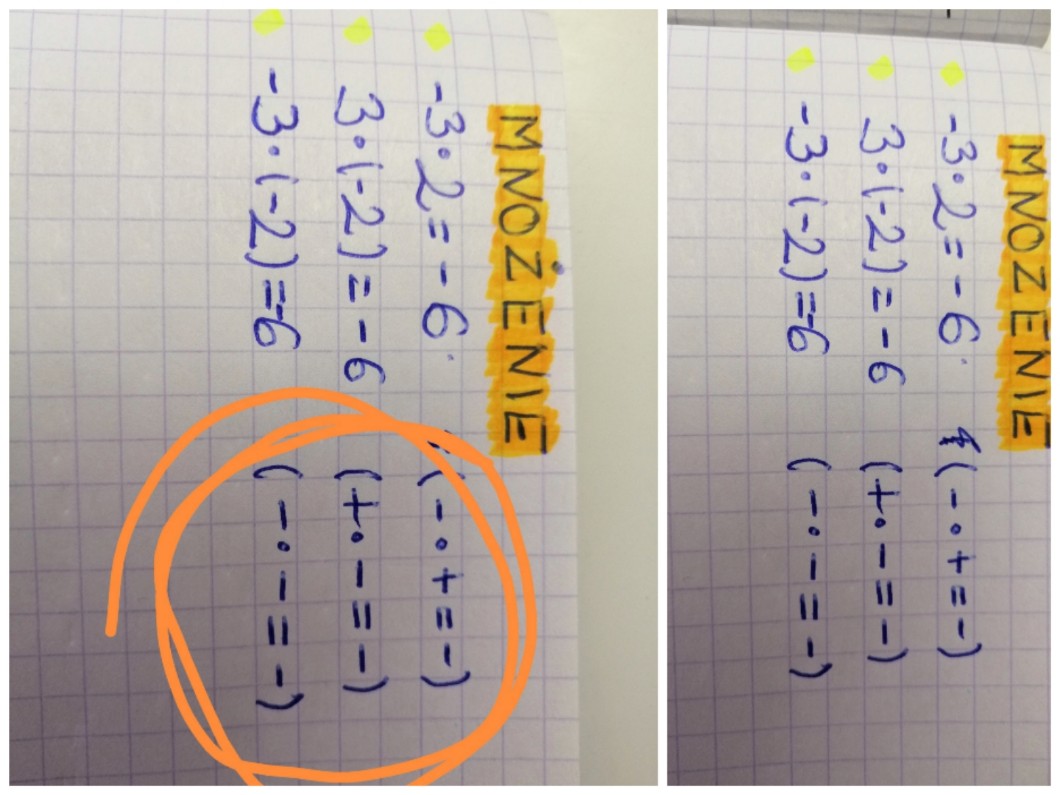 MNOŻENIE
-3·2=-6 (-·+=-)
3·(-2)=-6 (+·-=-)
-3·(-2)=-6 (-·-=-)
MNOŻENIE
-3·2=-6 (-·+=-)
3·(-2)=-6 (+·-=-)
-3·(-2)=-6 (-·-=-)